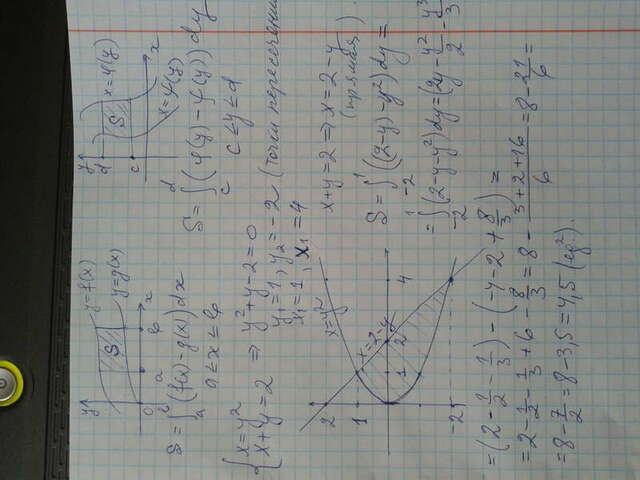 y
y=f(x)
y=g(x)
S
0
a
b
x
S = ∫_a^b (f(x) - g(x)) dx
a ≤ x ≤ b
y
d
c
x=φ(y)
S
x=ψ(y)
x
S = ∫_c^d (φ(y) - ψ(y)) dy
c ≤ y ≤ d
{ x = y²
x + y = 2 ⇒ y² + y - 2 = 0
y₁ = 1, y₂ = -2 (точки пересечения
x₁ = 1, x₁ = 4
x=y²
x=2-y
2
1
1
2
4
-2
x + y = 2 ⇒ x = 2 - y
(прямая)
S = ∫_{-2}^1 ((2-y) - y²) dy =
= ∫_{-2}^1 (2 - y - y²) dy = (2y - y²/2 - y³/3
= (2 - 1/2 - 1/3) - (-4 - 2 + 8/3) =
= 2 - 1/2 - 1/3 + 6 - 8/3 = 8 - (3+2+16)/6 = 8 - 21/6 =
= 8 - 7/2 = 8 - 3,5 = 4,5 (ед²).